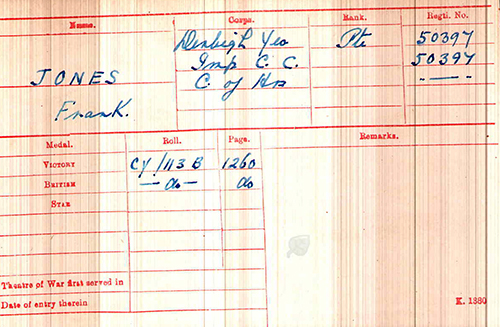 Name. Corps. Rank. Regtl. No.
Denbigh Yeo Pte 50397
Imp C. C. 50397
JONES C of Hrs -----
Frank.
Medal. Roll. Page. Remarks.
VICTORY CY/113 B 1260
BRITISH — do — do
STAR
Theatre of War first served in
Date of entry therein K. 1380